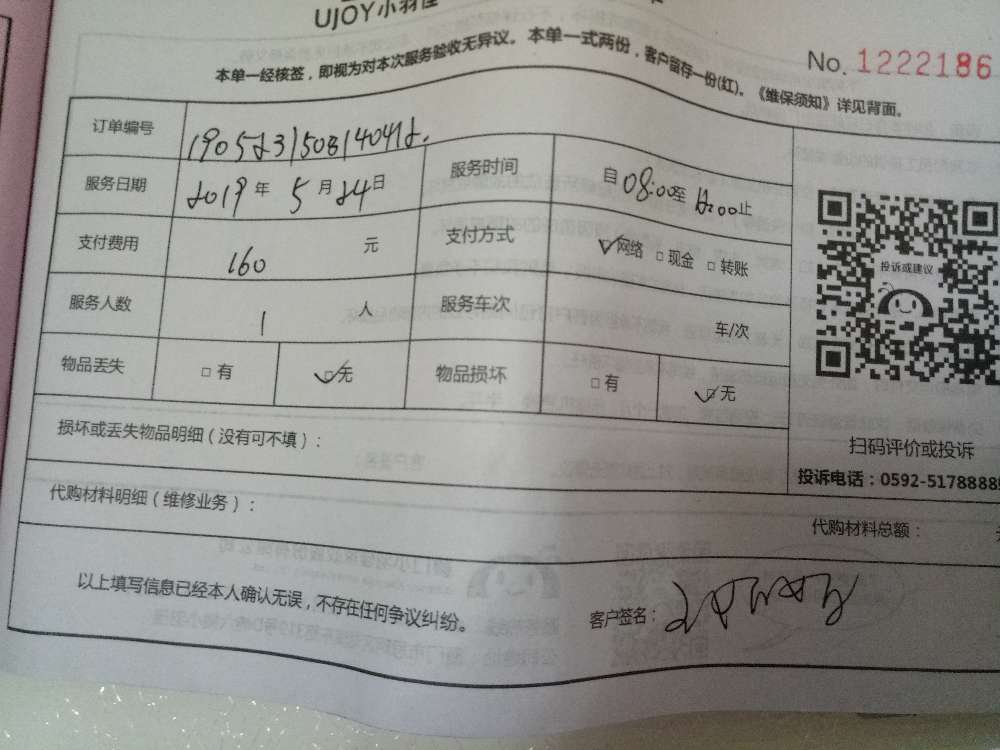 UJOY小羽佳
No. 1222186
本单一经核签，即视为对本次服务验收无异议。本单一式两份，客户留存一份(红)。《维保须知》详见背面。
订单编号 1905231508140412.
服务日期 2019年5月24日 服务时间 自08:00至12:00止
支付费用 160元 支付方式 网络 现金 转账
服务人数 1人 服务车次 车/次
物品丢失 有 无 物品损坏 有 无
投诉或建议
损坏或丢失物品明细（没有可不填）：
扫码评价或投诉
投诉电话：0592-5178888
代购材料明细（维修业务）：
代购材料总额：
以上填写信息已经本人确认无误，不存在任何争议纠纷。
客户签名：